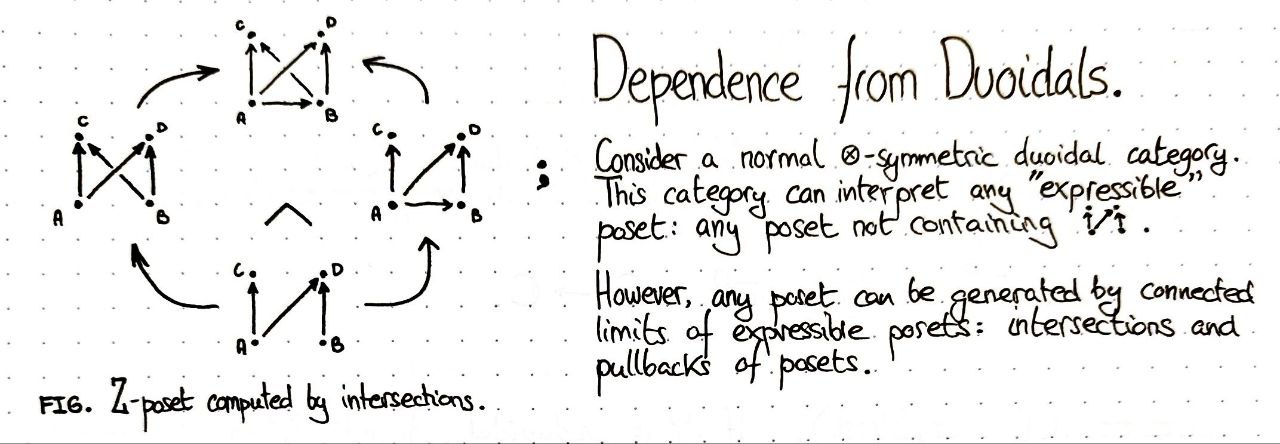 C D
A B
C D
A B
C D
A B
C D
A B
FIG. Z-poset computed by intersections.
;
Dependence from Duoidals.
Consider a normal ⊗-symmetric duoidal category.
This category can interpret any "expressible"
poset: any poset not containing .
However, any poset can be generated by connected
limits of expressible posets: intersections and
pullbacks of posets.